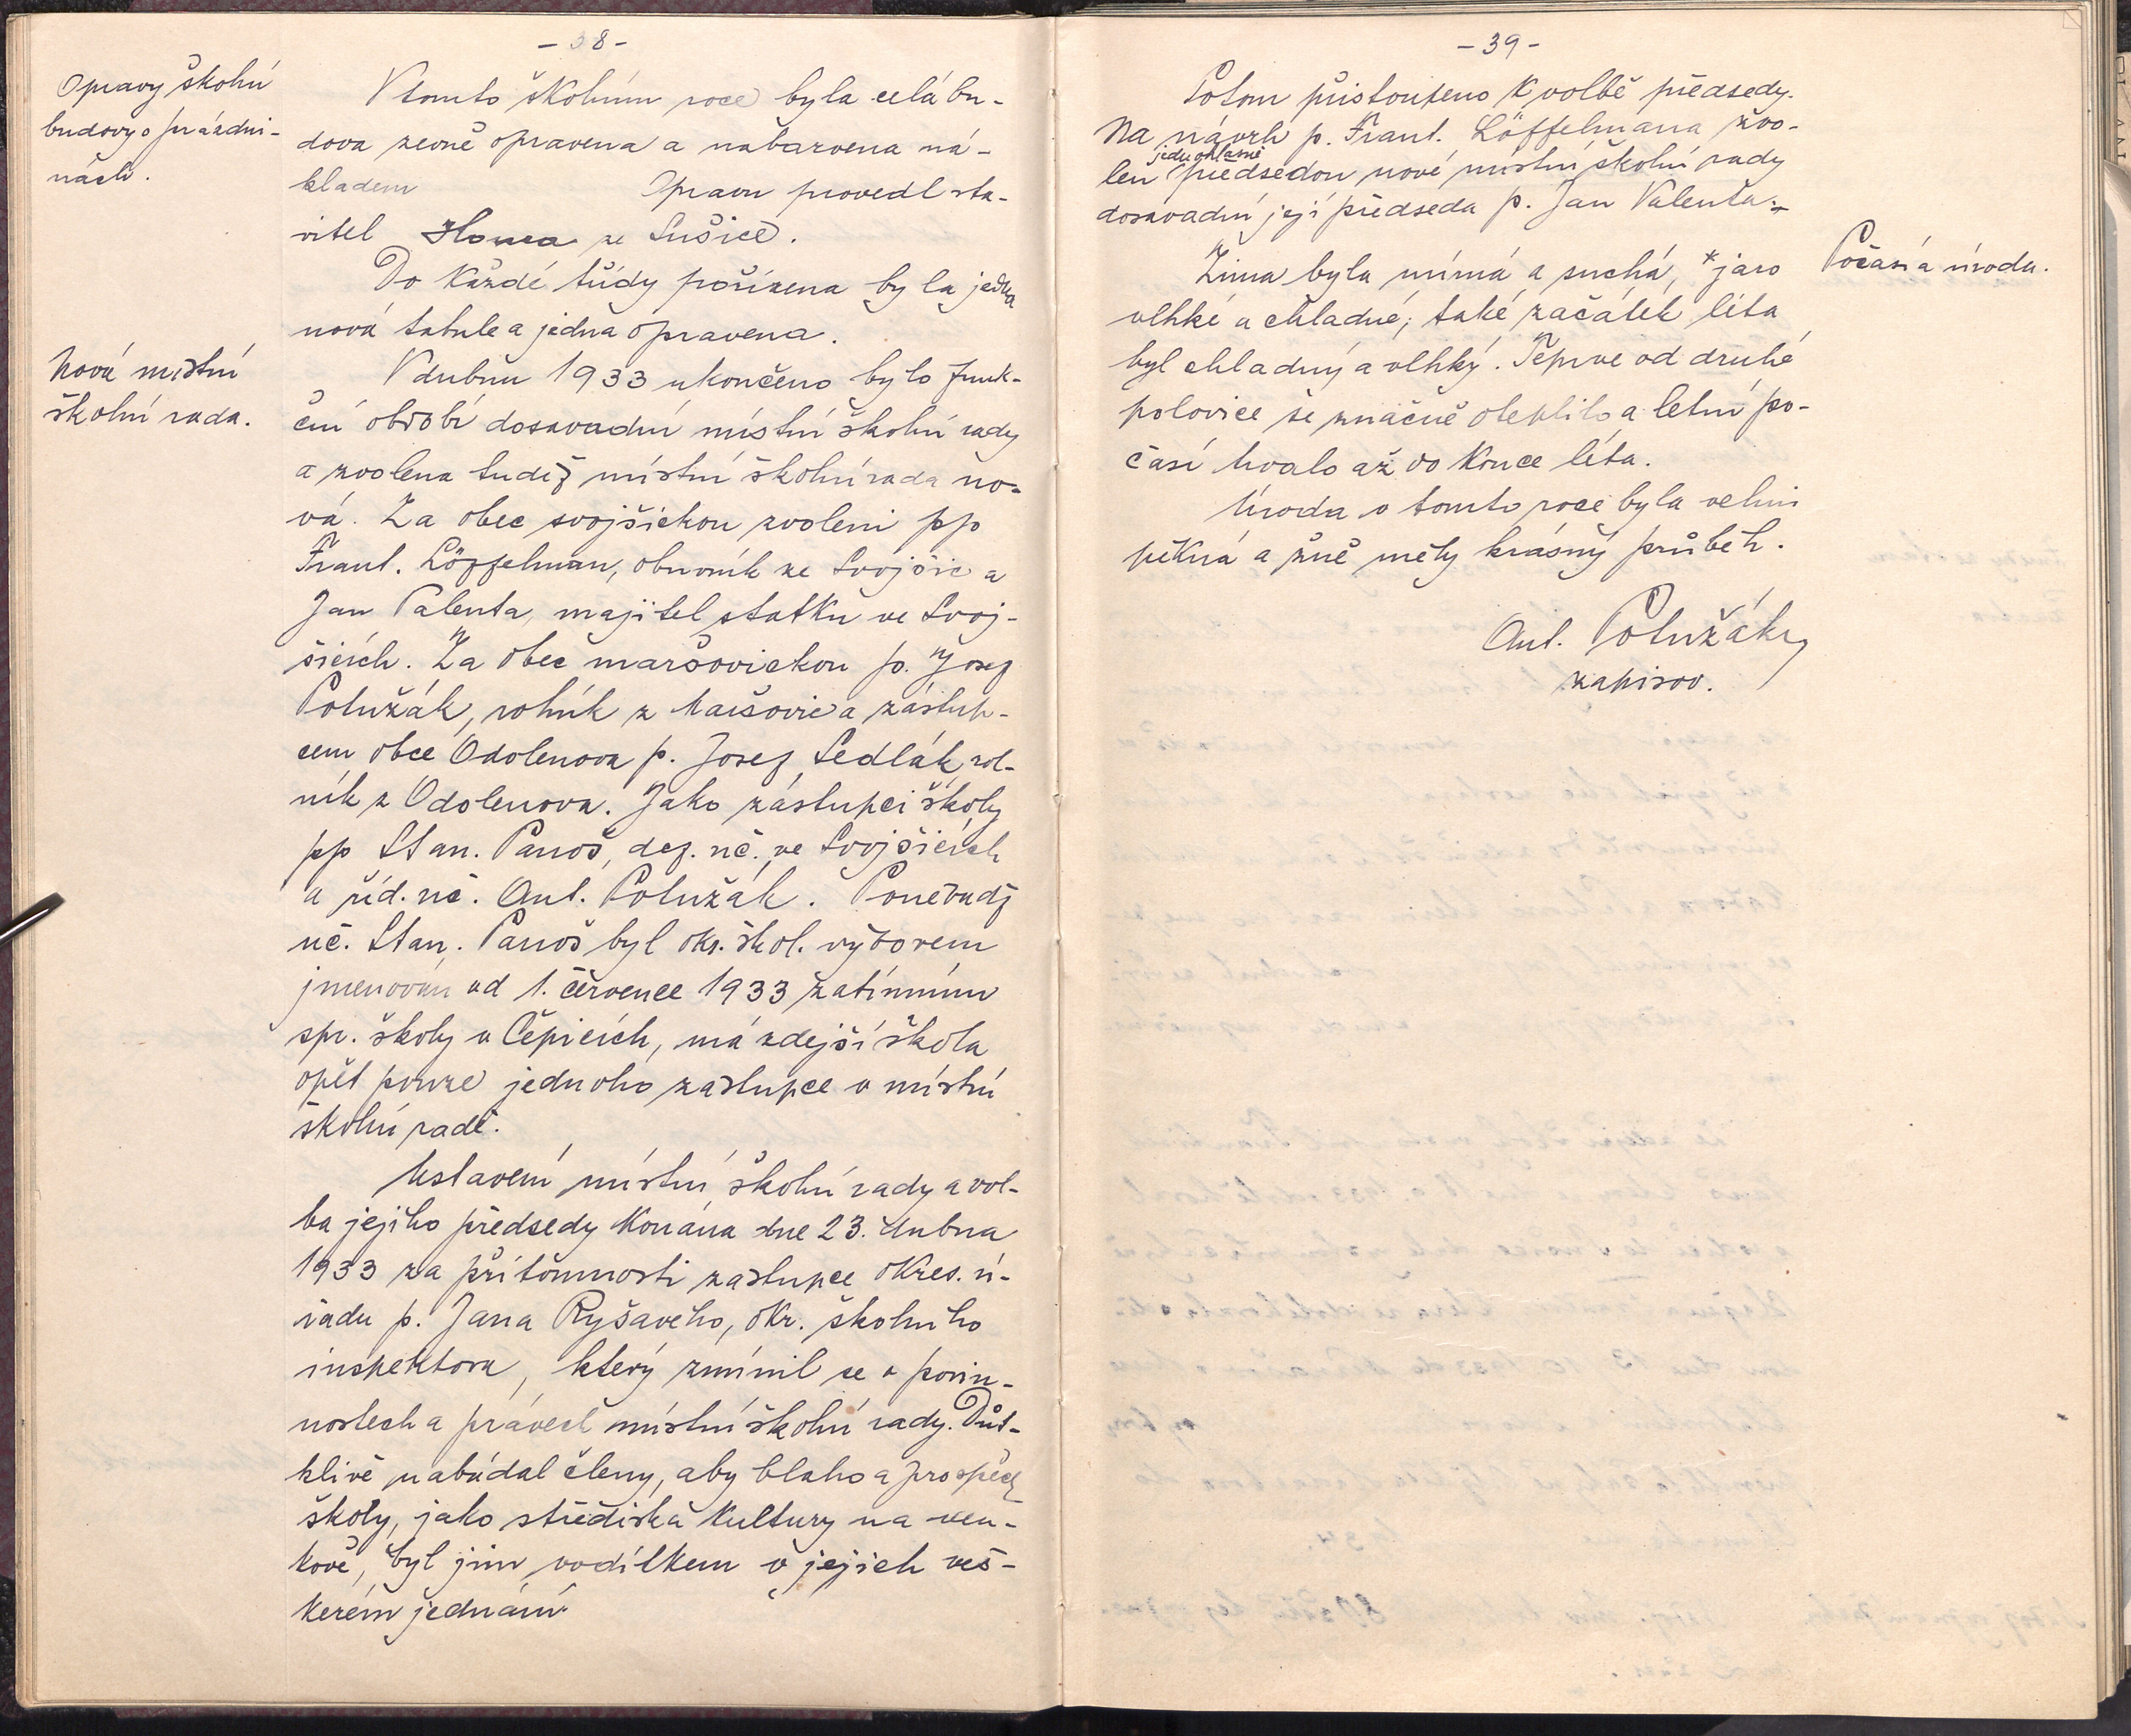 - 38 -
Opravy školní
budovy o prázdni-
nách.
V tomto školním roce byla celá bu-
dova zevně opravena a nabarvena ná-
kladem Opravu provedl sta-
vitel Houra ze Sušice.
Do každé třídy pořízena byla jedna
nová tabule a jedna opravena.
Nová místní
školní rada.
V dubnu 1933 ukončeno bylo funk-
ční období dosavadní místní školní rady
a zvolena tudíž místní školní rada no-
vá. Za obec svojšickou zvoleni pp
Frant. Löffelman, obuvník ze Svojšic a
Jan Valenta, majitel statku ve Svoj-
šicích. Za obec maršovickou p. Josef
Polužák, rolník z Maršovic a zástup-
cem obce Odolenova p. Josef Sedlák, rol-
ník z Odolenova. Jako zástupci školy
pp Stan. Panoš, def. uč. ve Svojšicích
a říd. uč. Ant. Polužák. Poněvadž
uč. Stan. Panoš byl okr. škol. výborem
jmenován od 1. července 1933 zatímním
spr. školy v Čepicích, má zdejší škola
opět pouze jednoho zástupce v místní
školní radě.
Ustavení místní školní rady a vol-
ba jejího předsedy konána dne 23. dubna
1933 za přítomnosti zástupce okres. ú-
řadu p. Jana Ryšavého, okr. školního
inspektora, který zmínil se o povin-
nostech a právech místní školní rady. Důt-
klivě nabádal členy, aby blaho a prospěch
školy, jako střediska kultury na ven-
kově, byl jim vodítkem v jejich veš-
kerém jednání.
- 39 -
Potom přistoupeno k volbě předsedy.
Na návrh p. Frant. Löffelmana zvo-
jednohlasně
len předsedou nové místní školní rady
dosavadní její předseda p. Jan Valenta.
Počasí a úroda.
Zima byla mírná a suchá, *jaro
vlhké a chladné; také začátek léta
byl chladný a vlhký. Teprve od druhé
polovice se značně oteplilo a letní po-
časí trvalo až do konce léta.
Úroda v tomto roce byla velmi
pěkná a žně měly krásný průběh.
Ant. Polužák,
zapisov.